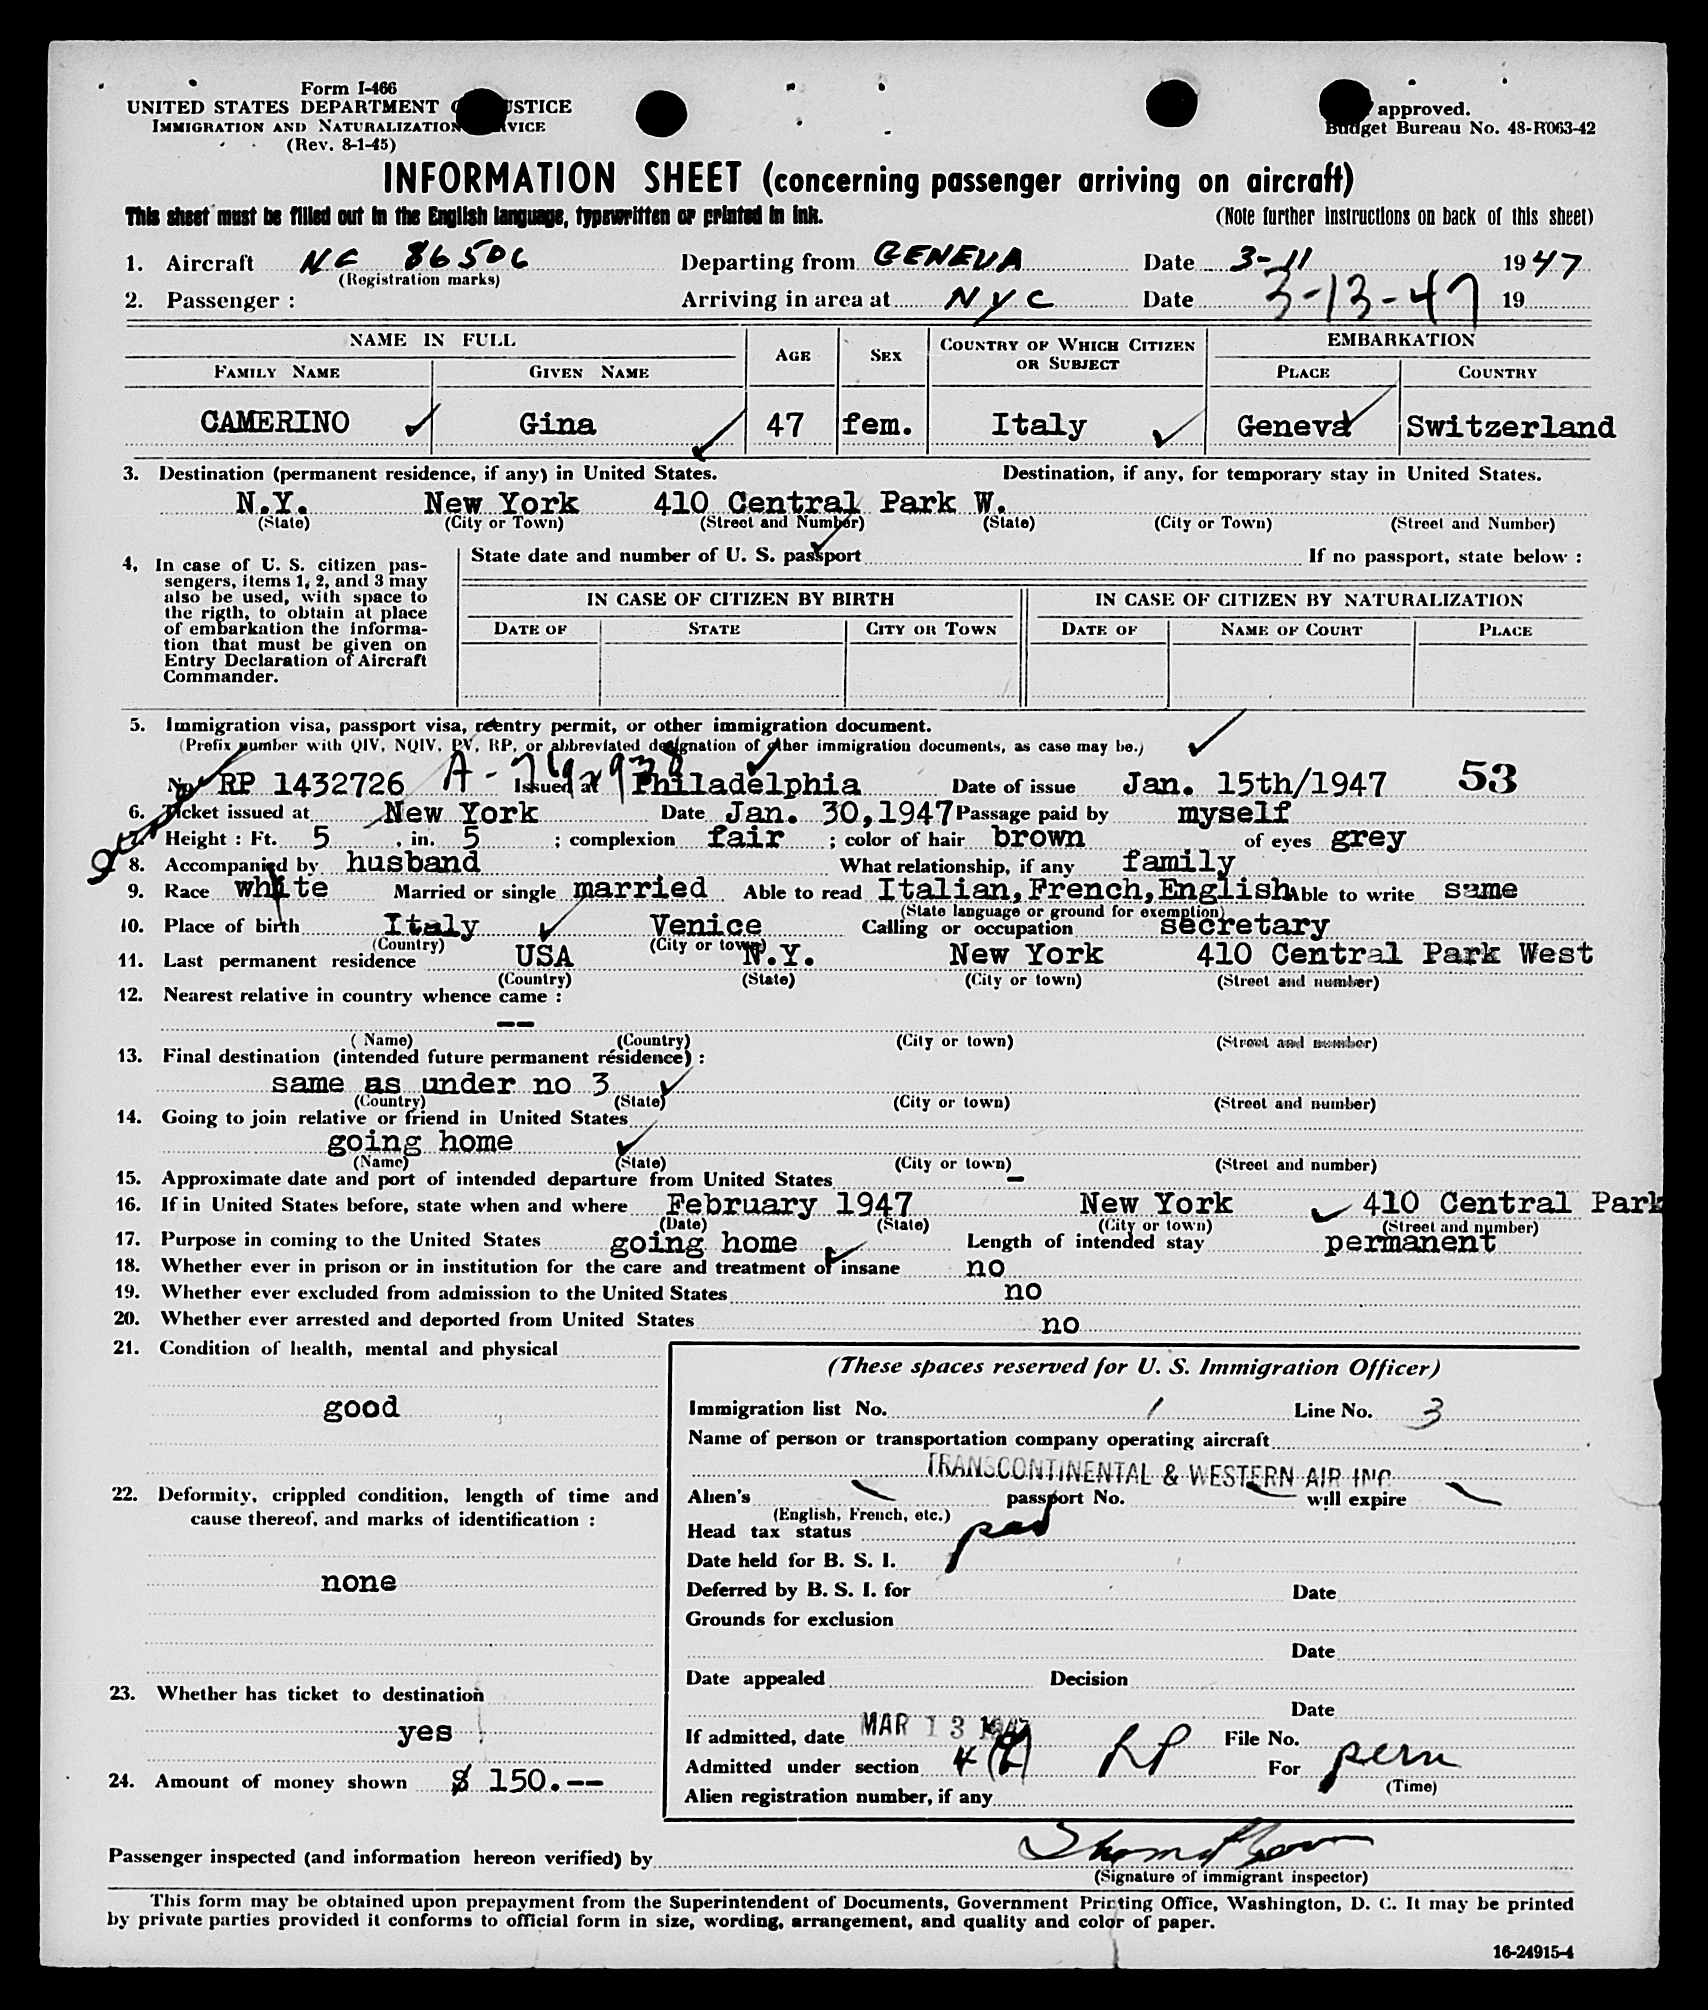 Form I-466
UNITED STATES DEPARTMENT OF JUSTICE
IMMIGRATION AND NATURALIZATION SERVICE
(Rev. 8-1-45)
approved.
Budget Bureau No. 48-R063-42
INFORMATION SHEET (concerning passenger arriving on aircraft)
This sheet must be filled out in the English language, typewritten or printed in ink. (Note further instructions on back of this sheet)
1. Aircraft NC 86506 Departing from GENEVA Date 3-11 1947
(Registration marks)
2. Passenger : Arriving in area at NYC Date 3-13-47 19
NAME IN FULL AGE SEX COUNTRY OF WHICH CITIZEN OR SUBJECT EMBARKATION
FAMILY NAME GIVEN NAME PLACE COUNTRY
CAMERINO Gina 47 fem. Italy Geneva Switzerland
3. Destination (permanent residence, if any) in United States. Destination, if any, for temporary stay in United States.
N.Y. New York 410 Central Park W.
(State) (City or Town) (Street and Number) (State) (City or Town) (Street and Number)
4, In case of U. S. citizen pas-
sengers, items 1, 2, and 3 may
also be used, with space to
the rigth, to obtain at place
of embarkation the informa-
tion that must be given on
Entry Declaration of Aircraft
Commander.
State date and number of U. S. passport If no passport, state below :
IN CASE OF CITIZEN BY BIRTH IN CASE OF CITIZEN BY NATURALIZATION
DATE OF STATE CITY OR TOWN DATE OF NAME OF COURT PLACE
5. Immigration visa, passport visa, reentry permit, or other immigration document.
(Prefix number with QIV, NQIV, PV, RP, or abbreviated designation of other immigration documents, as case may be.)
No. RP 1432726 Issued at Philadelphia Date of issue Jan. 15th/1947 53
6. Ticket issued at New York Date Jan. 30,1947 Passage paid by myself
7. Height : Ft. 5 , in. 5 ; complexion fair ; color of hair brown of eyes grey
8. Accompanied by husband What relationship, if any family
9. Race white Married or single married Able to read Italian,French,English Able to write same
(State language or ground for exemption)
10. Place of birth Italy Venice Calling or occupation secretary
(Country) (City or town)
11. Last permanent residence USA N.Y. New York 410 Central Park West
(Country) (State) (City or town) (Street and number)
12. Nearest relative in country whence came :
--
( Name) (Country) (City or town) (Street and number)
13. Final destination (intended future permanent résidence) :
same as under no 3
(Country) (State) (City or town) (Street and number)
14. Going to join relative or friend in United States
going home
(Name) (State) (City or town) (Street and number)
15. Approximate date and port of intended departure from United States -
16. If in United States before, state when and where February 1947 New York 410 Central Park
(Date) (State) (City or town) (Street and number)
17. Purpose in coming to the United States going home Length of intended stay permanent
18. Whether ever in prison or in institution for the care and treatment of insane no
19. Whether ever excluded from admission to the United States no
20. Whether ever arrested and deported from United States no
21. Condition of health, mental and physical
good
22. Deformity, crippled condition, length of time and
cause thereof, and marks of identification :
none
23. Whether has ticket to destination
yes
24. Amount of money shown $ 150.--
(These spaces reserved for U. S. Immigration Officer)
Immigration list No. 1 Line No. 3
Name of person or transportation company operating aircraft
TRANSCONTINENTAL & WESTERN AIR INC.
Alien's passport No. will expire
(English, French, etc.)
Head tax status
Date held for B. S. I.
Deferred by B. S. I. for Date
Grounds for exclusion
Date
Date appealed Decision
Date
If admitted, date MAR 13 1947 File No.
Admitted under section 4(b) RP For perm
(Time)
Alien registration number, if any
Passenger inspected (and information hereon verified) by
(Signature of immigrant inspector)
This form may be obtained upon prepayment from the Superintendent of Documents, Government Printing Office, Washington, D. C. It may be printed
by private parties provided it conforms to official form in size, wording, arrangement, and quality and color of paper.
16-24915-4